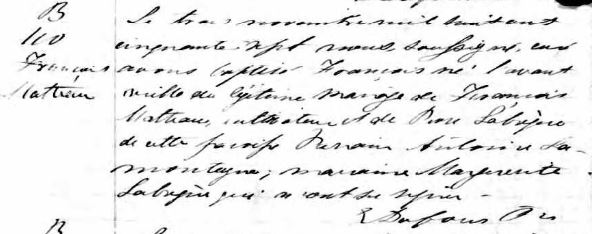 B
110
François
Mathieu
Le trois novembre mil huit cent
cinquante-sept nous soussigné, curé
avons baptisé François né l'avant
veille du légitime mariage de François
Mathieu, cultivateur et de Rose Labrèque
de cette paroisse Parrain Antoine La-
montagne; marraine Marguerite
Labrèque qui n'ont su signer -
Dufour Ptre
B